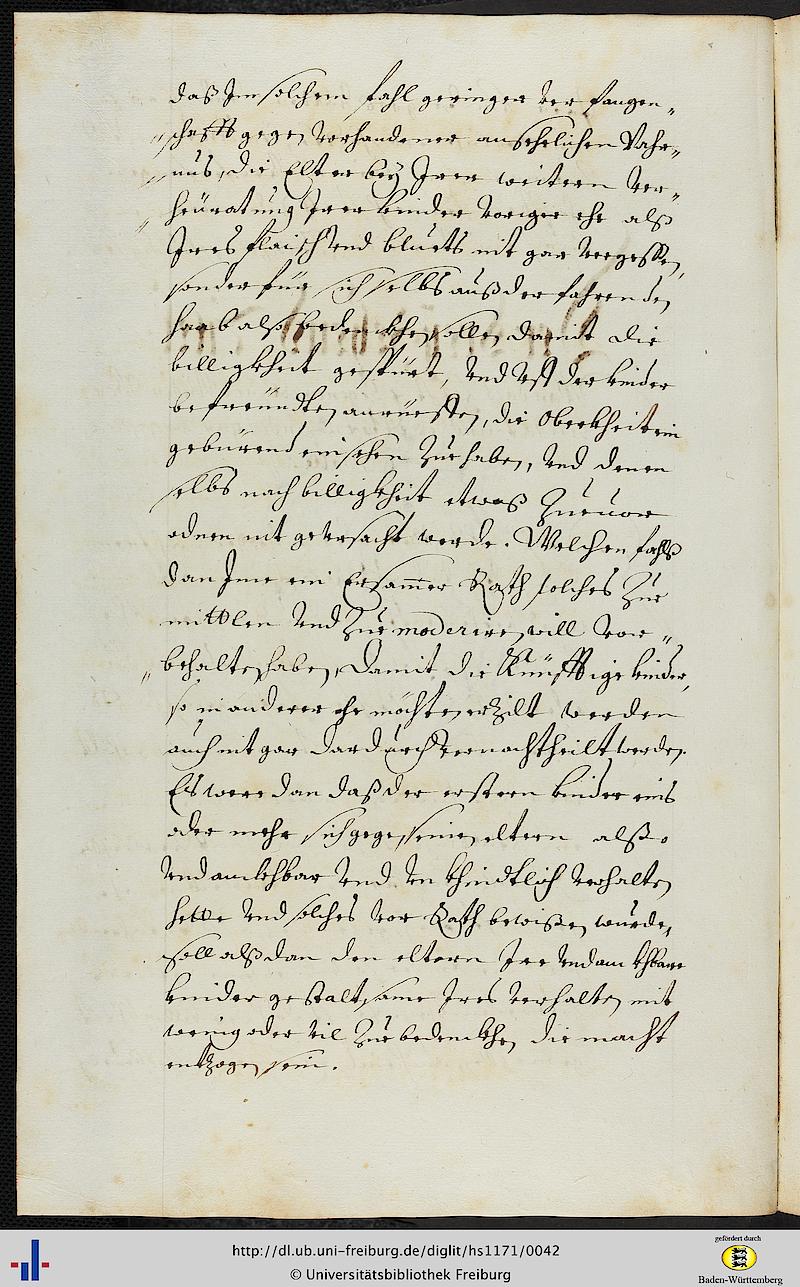 daß Im solchem fahl geringer verfangen„
„schafft gegen vorhandener ansehelichen Vahr„
„nus, die Elter bey Irer weitern ver„
„heüratung Irer kinder voriger ehe alß
Ires flaisch vnd bluets nit gar vergessen,
sonder für sich selbs auß der fahrenden
haab also bedenckhen sollen, damit die
billigkheit gespürt, vnd vff der kinder
befreündten anrüeffen, die Oberkheit ein
gebürend einsehen Zue haben, vnd denen
selbs nach billigkheit etwaß Zueuor
odnen nit geursacht werde. Welchen fahls
dan Ime ein Ersamer Rath solches Zue
mittlen vnd Zue moderiren, will vor„
„behalten haben, damit die künfftige kinder,
so in anderer ehe möchten erzilt werden
auch nit gar dardurch vernachtheilt werden.
Es were dan daß der erstern kinder eins
oder mehr sich gegen seinen eltern also
vndanckhbar vnd vnkhindtlich verhalten
hette vnd solches vor Rath bewißen wurde,
soll alßdan den eltern Ire vndanckhbare
kinder gestaltsame Ires verhalten mit
wenig oder vil Zue bedenckhen die macht
entzogen sein.
http://dl.ub.uni-freiburg.de/diglit/hs1171/0042
© Universitätsbibliothek Freiburg
gefördert durch
Baden-Württemberg